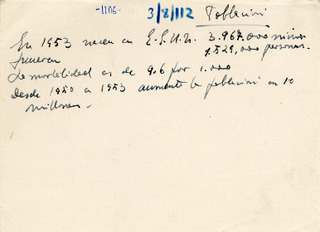 -1106-
3/8/112
Población
En 1953 nacen en E.E.U.U. 3.967.000 niños
mueren 1.529.000 personas.
La mortalidad es de 9.6 por 1.000
Desde 1950 a 1953 aumentó la población en 10
millones.-